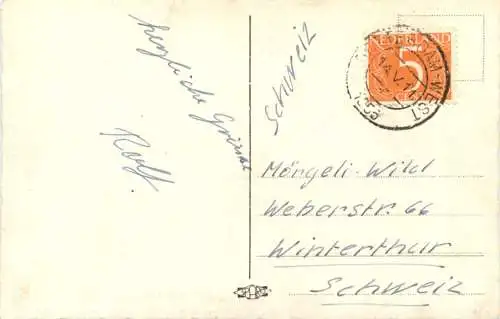 herzliche Grüsse
Rolf
Schweiz
NEDERLAND
5
AM-WEST
Möngeli-Wild
Weberstr. 66
Winterthur
Schweiz